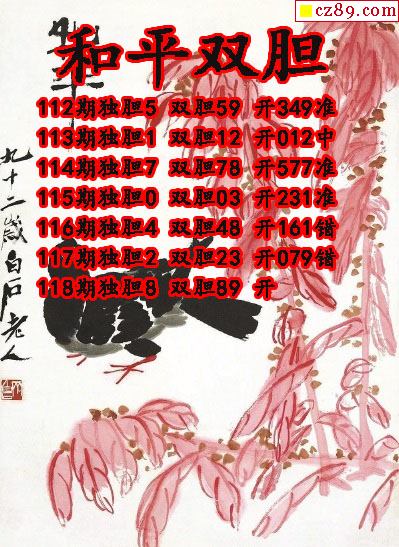 cz89.com
和平双胆
112期独胆5 双胆59 开349准
113期独胆1 双胆12 开012中
114期独胆7 双胆78 开577准
115期独胆0 双胆03 开231准
116期独胆4 双胆48 开161错
117期独胆2 双胆23 开079错
118期独胆8 双胆89 开
九十二岁白石老人